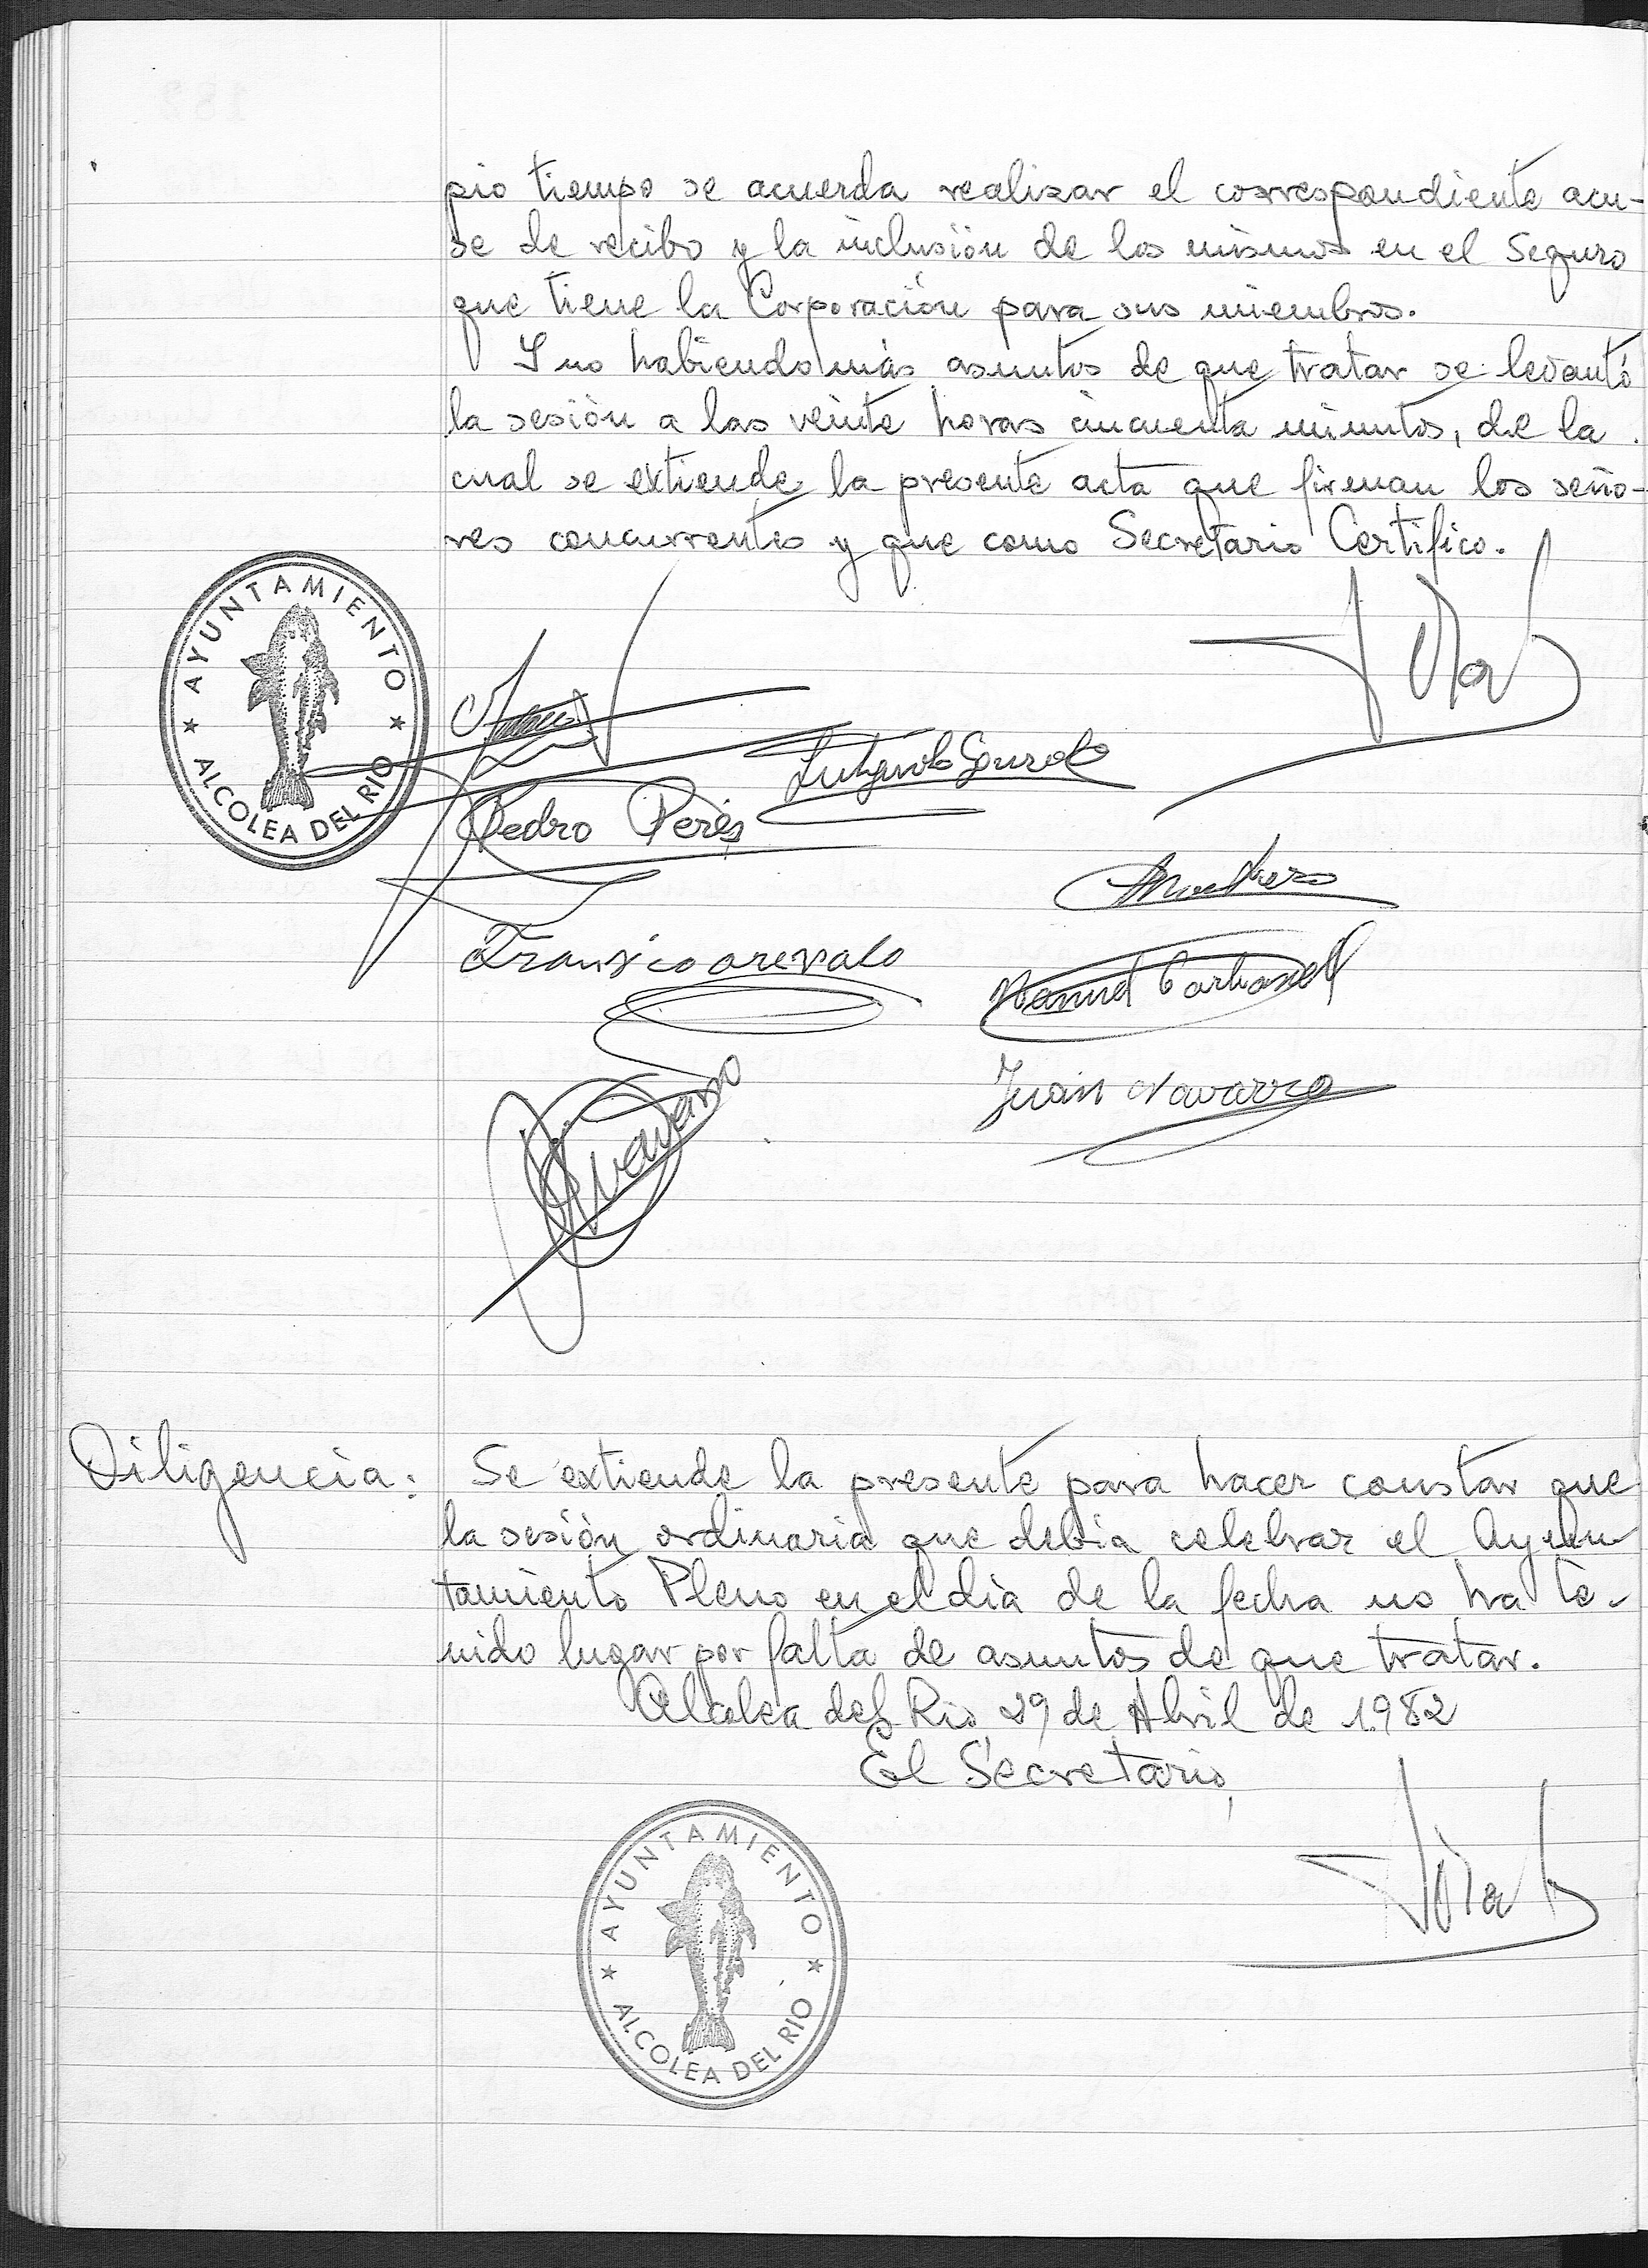 pio tiempo se acuerda realizar el correspondiente acu-
se de recibo y la inclusión de los mismos en el Seguro
que tiene la Corporación para sus miembros.
Y no habiendo más asuntos de que tratar se levantó
la sesión a las veinte horas cincuenta minutos, de la
cual se extiende la presente acta que firman los seño-
res concurrentes y que como Secretario Certifico.
AYUNTAMIENTO
ALCOLEA DEL RIO
Pedro Perés
Fransico arevalo
Manuel
Juan Navarro
Navarro
Diligencia: Se extiende la presente para hacer constar que
la sesión ordinaria que debia celebrar el Ayun
tamiento Pleno en el dia de la fecha no ha te-
nido lugar por falta de asuntos de que tratar.
Alcolea del Rio 29 de Abril de 1982
El Secretario,
AYUNTAMIENTO
ALCOLEA DEL RIO